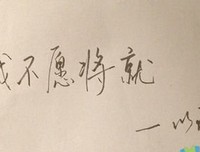 我不愿将就
一以